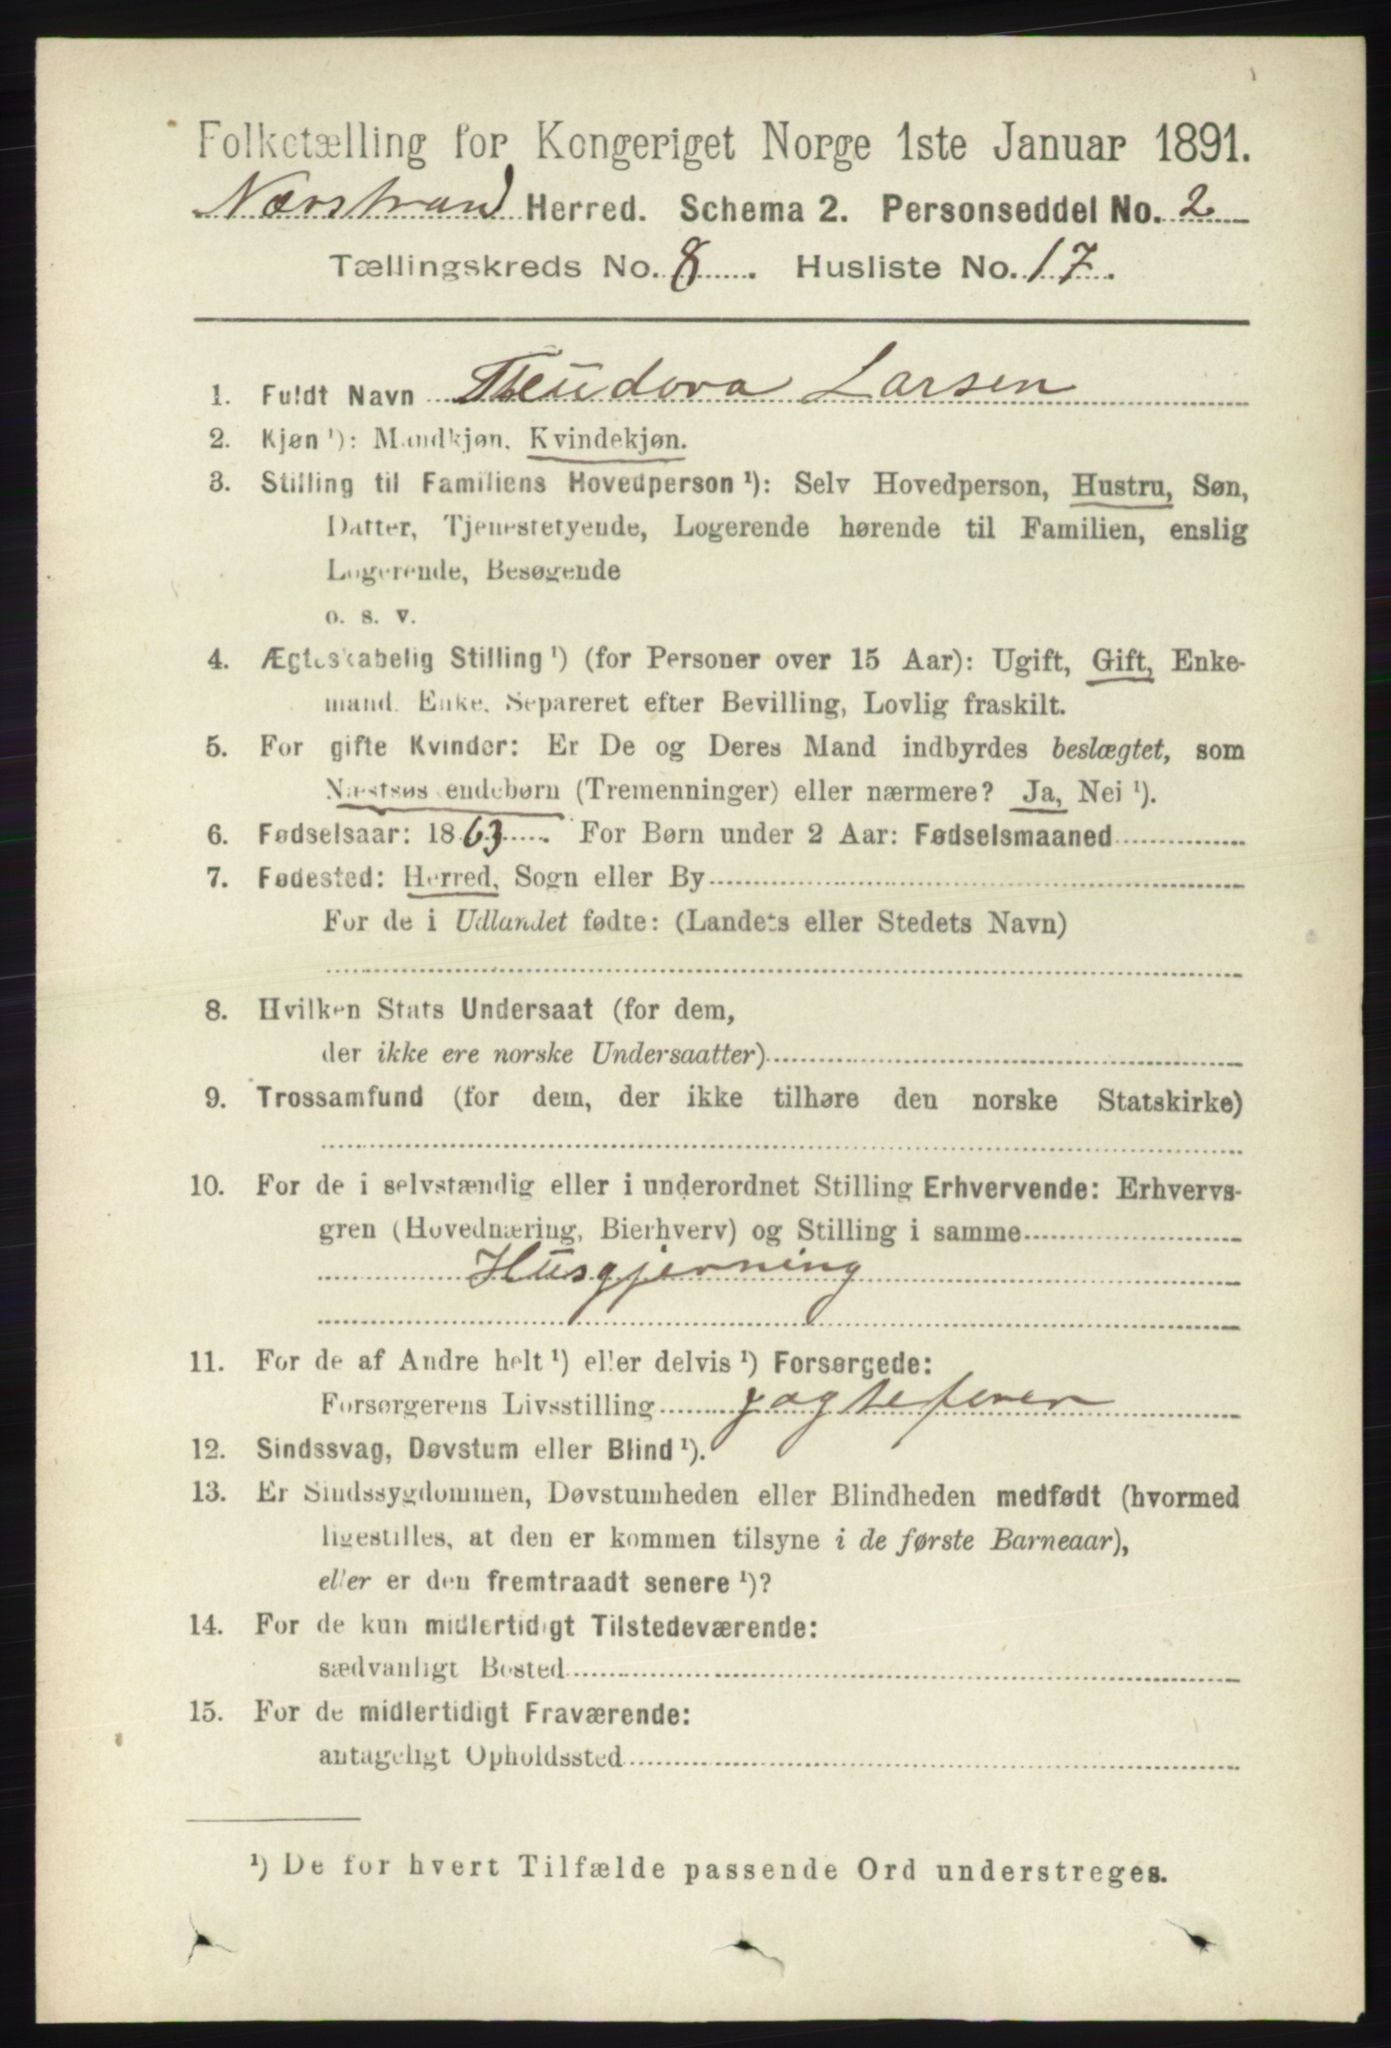 Folketælling for Kongeriget Norge 1ste Januar 1891.
Nærstrand Herred. Schema 2. Personseddel No. 2
Tællingskreds No. 8. Husliste No. 17.
1. Fuldt Navn Theudora Larsen
2. Kjøn ¹): Mandkjøn, Kvindekjøn.
3. Stilling til Familiens Hovedperson ¹): Selv Hovedperson, Hustru, Søn,
Datter, Tjenestetyende, Logerende hørende til Familien, enslig
Logerende, Besøgende
o. s. v.
4. Ægteskabelig Stilling ¹) (for Personer over 15 Aar): Ugift, Gift, Enke-
mand, Enke, Separeret efter Bevilling, Lovlig fraskilt.
5. For gifte Kvinder: Er De og Deres Mand indbyrdes beslægtet, som
Næstsøskendebørn (Tremenninger) eller nærmere? Ja, Nei ¹).
6. Fødselsaar: 1863. For Børn under 2 Aar: Fødselsmaaned
7. Fødested: Herred, Sogn eller By
For de i Udlandet fødte: (Landets eller Stedets Navn)
8. Hvilken Stats Undersaat (for dem,
der ikke ere norske Undersaatter)
9. Trossamfund (for dem, der ikke tilhøre den norske Statskirke)
10. For de i selvstændig eller i underordnet Stilling Erhvervende: Erhvervs-
gren (Hovednæring, Bierhverv) og Stilling i samme
Husgjerning
11. For de af Andre helt ¹) eller delvis ¹) Forsørgede:
Forsørgerens Livsstilling jagtefører
12. Sindssvag, Døvstum eller Blind ¹).
13. Er Sindssygdommen, Døvstumheden eller Blindheden medfødt (hvormed
ligestilles, at den er kommen tilsyne i de første Barneaar),
eller er den fremtraadt senere ¹)?
14. For de kun midlertidigt Tilstedeværende:
sædvanligt Bosted
15. For de midlertidigt Fraværende:
antageligt Opholdssted
¹) De for hvert Tilfælde passende Ord understreges.